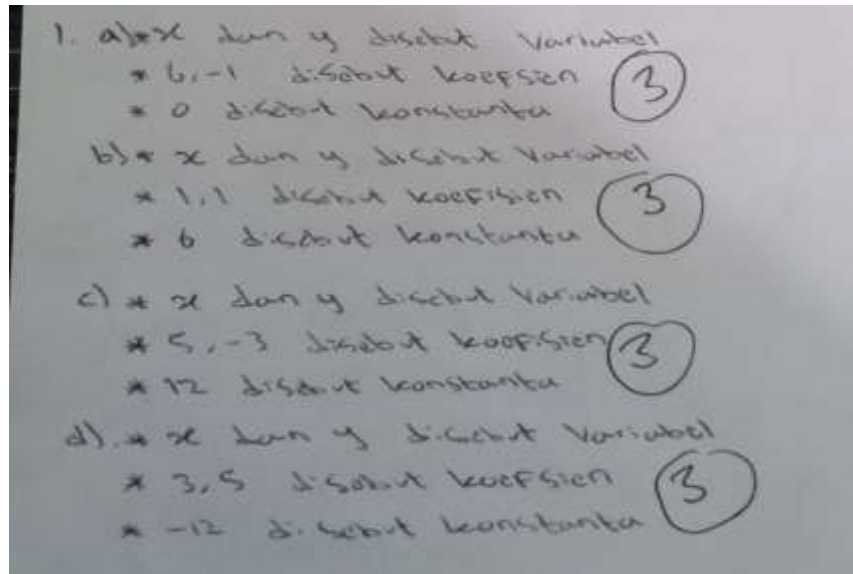 1. a) * x dan y disebut Variabel
* 6, -1 disebut koefsien
3
* 0 disebut konstanta
b) * x dan y disebut Variabel
* 1, 1 disebut koefisien
3
* 6 disebut konstanta
c) * x dan y disebut Variabel
* 5, -3 disebut koefisien
3
* 12 disebut konstanta
d). * x dan y disebut Variabel
* 3, 5 disebut koefsien
3
* -12 disebut konstanta